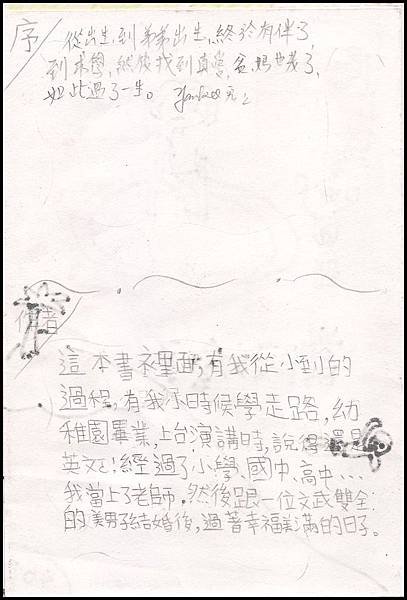 序
從出生,到弟弟出生,終於有伴了,
到求學,然後找到真愛,爸媽也
如此過了一生。
作者
這本書裡面,有我從小到的
過程,有我小時候學走路,幼
稚園畢業,上台演講時,說得還是
英文ㄛ!經過了小學、國中、高中…
我當上了老師,然後跟一位文武雙全
的美男子結婚後,過著幸福美滿的日子。